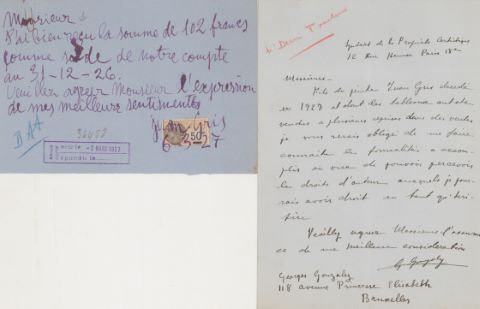 Monsieur
J'ai bien reçu la somme de 102 francs
comme solde de notre compte
au 31-12-26.
Veuillez agréer Monsieur l'expression
de mes meilleurs sentiments
Juan Gris
6-3-27
50
BAA
-7 MARS 1927
Répondu le
Syndicat de la Propriété Artistique
12 Rue Henner Paris
Messieurs
Fils du peintre Juan Gris décédé
en 1927 et dont des tableaux ont été
vendus à plusieurs reprises dans des ventes
je vous serais obligé de me faire
connaître les formalités à accom-
plir en vue de pouvoir percevoir
les droits d'auteur auxquels je pour-
rais avoir droit en tant qu'héri-
tier
Veuillez agréer Messieurs l'assuran-
ce de ma meilleure considération
G Gonzalez
Georges Gonzalez
118 avenue Princesse Elisabeth
Bruxelles